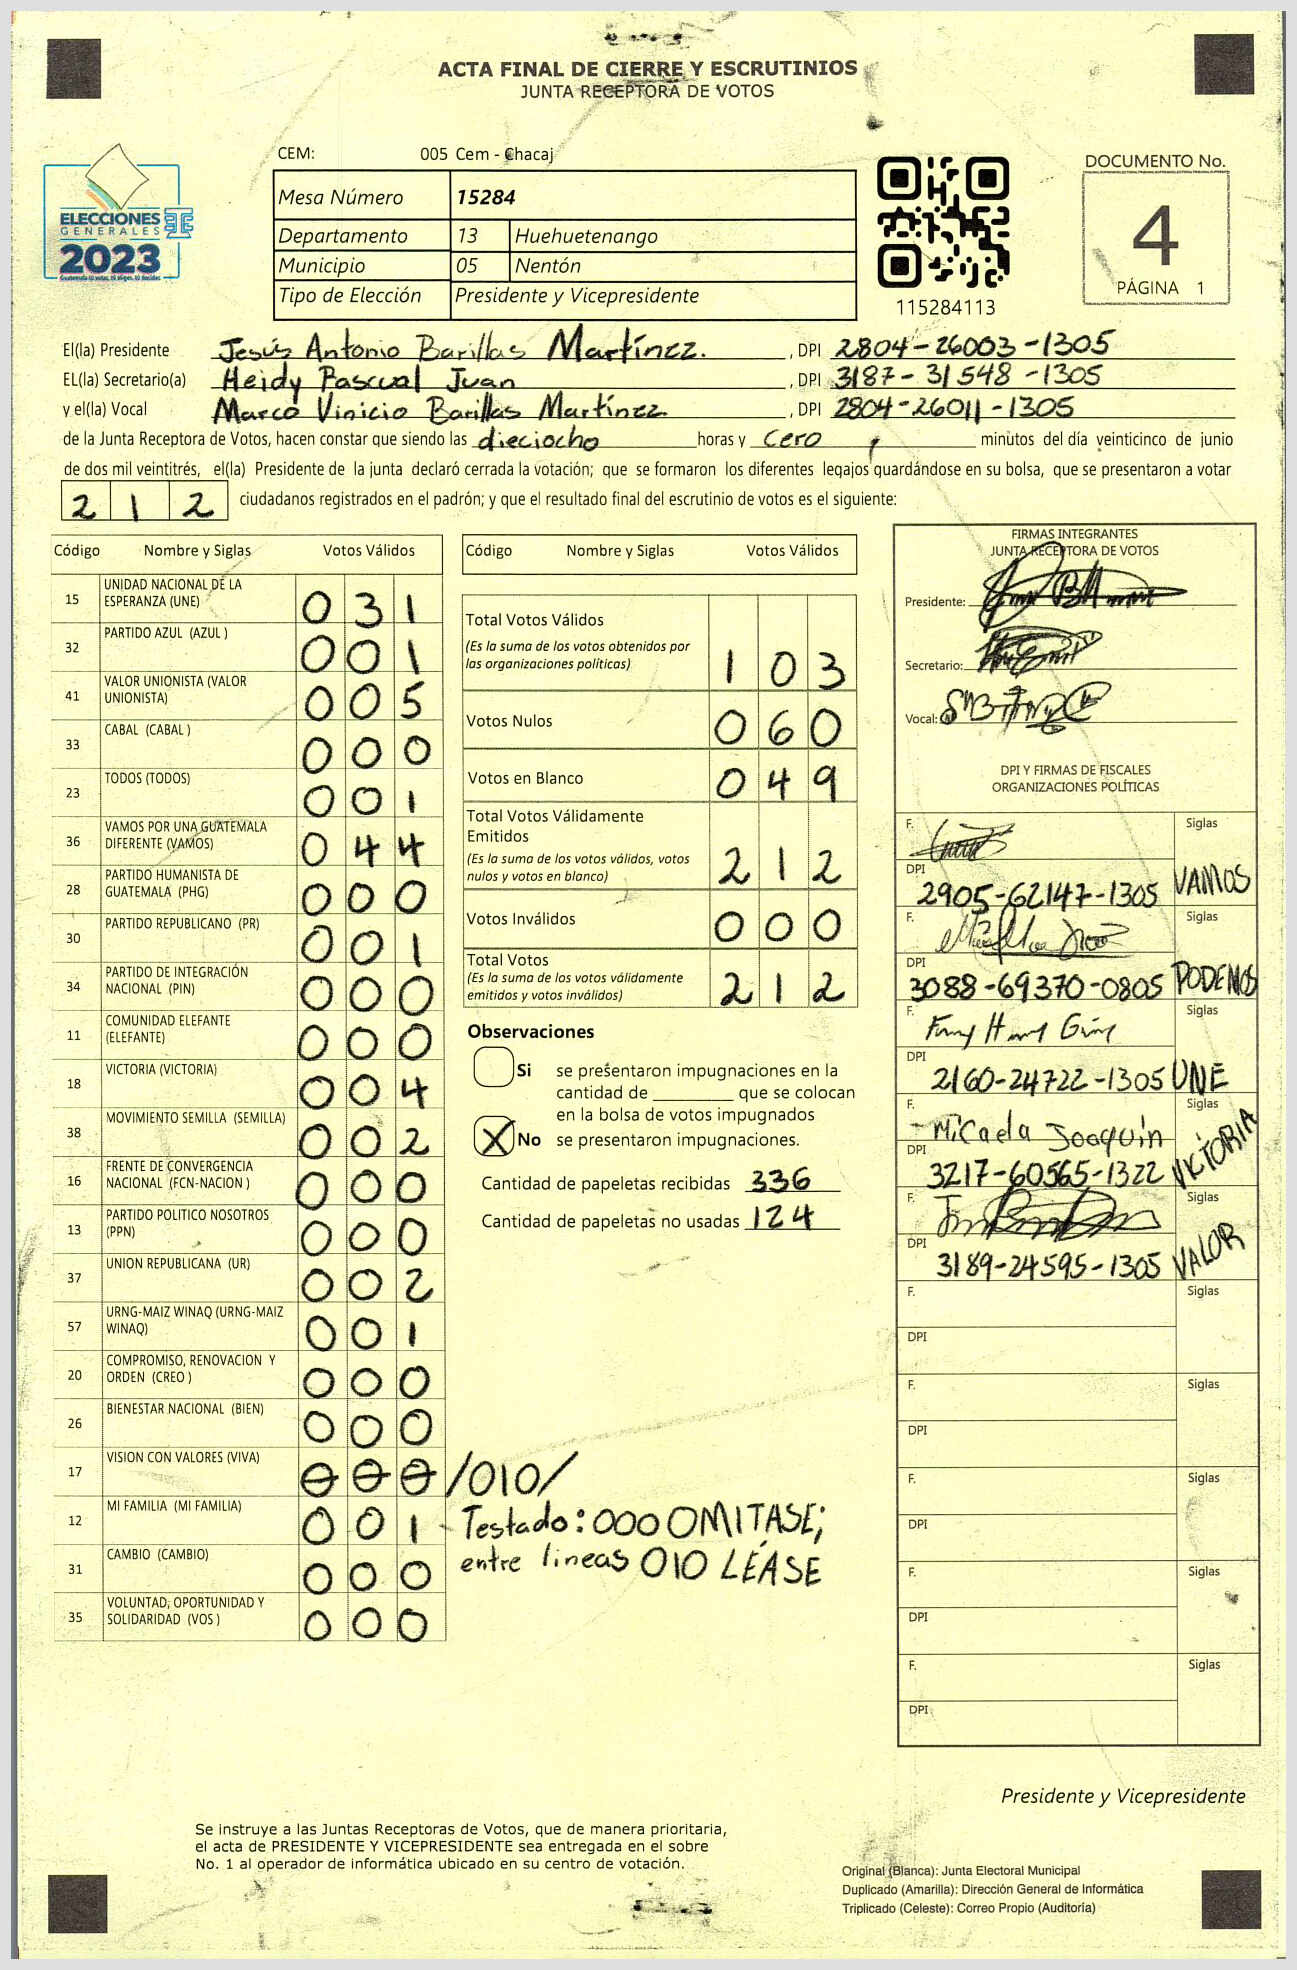 ACTA FINAL DE CIERRE Y ESCRUTINIOS
JUNTA RECEPTORA DE VOTOS
ELECCIONES
GENERALES
2023
CEM: 005 Cem - Chacaj
Mesa Número 15284
Departamento 13 Huehuetenango
Municipio 05 Nentón
Tipo de Elección Presidente y Vicepresidente
115284113
DOCUMENTO No.
4
PÁGINA 1
El(la) Presidente Jesús Antonio Barillas Martínez. , DPI 2804-26003-1305
EL(la) Secretario(a) Heidy Pascual Juan , DPI 3187-31548-1305
y el(la) Vocal Marco Vinicio Barillas Martínez , DPI 2804-26011-1305
de la Junta Receptora de Votos, hacen constar que siendo las dieciocho horas y cero minutos del día veinticinco de junio
de dos mil veintitrés, el(la) Presidente de la junta declaró cerrada la votación; que se formaron los diferentes legajos guardándose en su bolsa, que se presentaron a votar
2 1 2 ciudadanos registrados en el padrón; y que el resultado final del escrutinio de votos es el siguiente:
Código Nombre y Siglas Votos Válidos
15 UNIDAD NACIONAL DE LA ESPERANZA (UNE) 0 3 1
32 PARTIDO AZUL (AZUL ) 0 0 1
41 VALOR UNIONISTA (VALOR UNIONISTA) 0 0 5
33 CABAL (CABAL ) 0 0 0
23 TODOS (TODOS) 0 0 1
36 VAMOS POR UNA GUATEMALA DIFERENTE (VAMOS) 0 4 4
28 PARTIDO HUMANISTA DE GUATEMALA (PHG) 0 0 0
30 PARTIDO REPUBLICANO (PR) 0 0 1
34 PARTIDO DE INTEGRACIÓN NACIONAL (PIN) 0 0 0
11 COMUNIDAD ELEFANTE (ELEFANTE) 0 0 0
18 VICTORIA (VICTORIA) 0 0 4
38 MOVIMIENTO SEMILLA (SEMILLA) 0 0 2
16 FRENTE DE CONVERGENCIA NACIONAL (FCN-NACION ) 0 0 0
13 PARTIDO POLITICO NOSOTROS (PPN) 0 0 0
37 UNION REPUBLICANA (UR) 0 0 2
57 URNG-MAIZ WINAQ (URNG-MAIZ WINAQ) 0 0 1
20 COMPROMISO, RENOVACION Y ORDEN (CREO ) 0 0 0
26 BIENESTAR NACIONAL (BIEN) 0 0 0
17 VISION CON VALORES (VIVA) 0 0 0 /010/
12 MI FAMILIA (MI FAMILIA) 0 0 1
31 CAMBIO (CAMBIO) 0 0 0
35 VOLUNTAD, OPORTUNIDAD Y SOLIDARIDAD (VOS ) 0 0 0
Testado: 000 OMITASE;
entre lineas 010 LÉASE
Código Nombre y Siglas Votos Válidos
Total Votos Válidos
(Es la suma de los votos obtenidos por
las organizaciones políticas) 1 0 3
Votos Nulos 0 6 0
Votos en Blanco 0 4 9
Total Votos Válidamente
Emitidos
(Es la suma de los votos válidos, votos
nulos y votos en blanco) 2 1 2
Votos Inválidos 0 0 0
Total Votos
(Es la suma de los votos válidamente
emitidos y votos inválidos) 2 1 2
Observaciones
Si se presentaron impugnaciones en la
cantidad de ________ que se colocan
en la bolsa de votos impugnados
X No se presentaron impugnaciones.
Cantidad de papeletas recibidas 336
Cantidad de papeletas no usadas 124
FIRMAS INTEGRANTES
JUNTA RECEPTORA DE VOTOS
Presidente:
Secretario:
Vocal:
DPI Y FIRMAS DE FISCALES
ORGANIZACIONES POLÍTICAS
F. Siglas
DPI 2905-62147-1305 VAMOS
F. Siglas
DPI 3088-69370-0805 PODEMOS
F. Siglas
DPI 2160-24722-1305 UNE
F. Micaela Joaquín Siglas
DPI 3217-60565-1322 VICTORIA
F. Siglas
DPI 3189-24595-1305 VALOR
F. Siglas
DPI
F. Siglas
DPI
F. Siglas
DPI
F. Siglas
DPI
F. Siglas
DPI
Presidente y Vicepresidente
Se instruye a las Juntas Receptoras de Votos, que de manera prioritaria,
el acta de PRESIDENTE Y VICEPRESIDENTE sea entregada en el sobre
No. 1 al operador de informática ubicado en su centro de votación.
Original (Blanca): Junta Electoral Municipal
Duplicado (Amarilla): Dirección General de Informática
Triplicado (Celeste): Correo Propio (Auditoría)